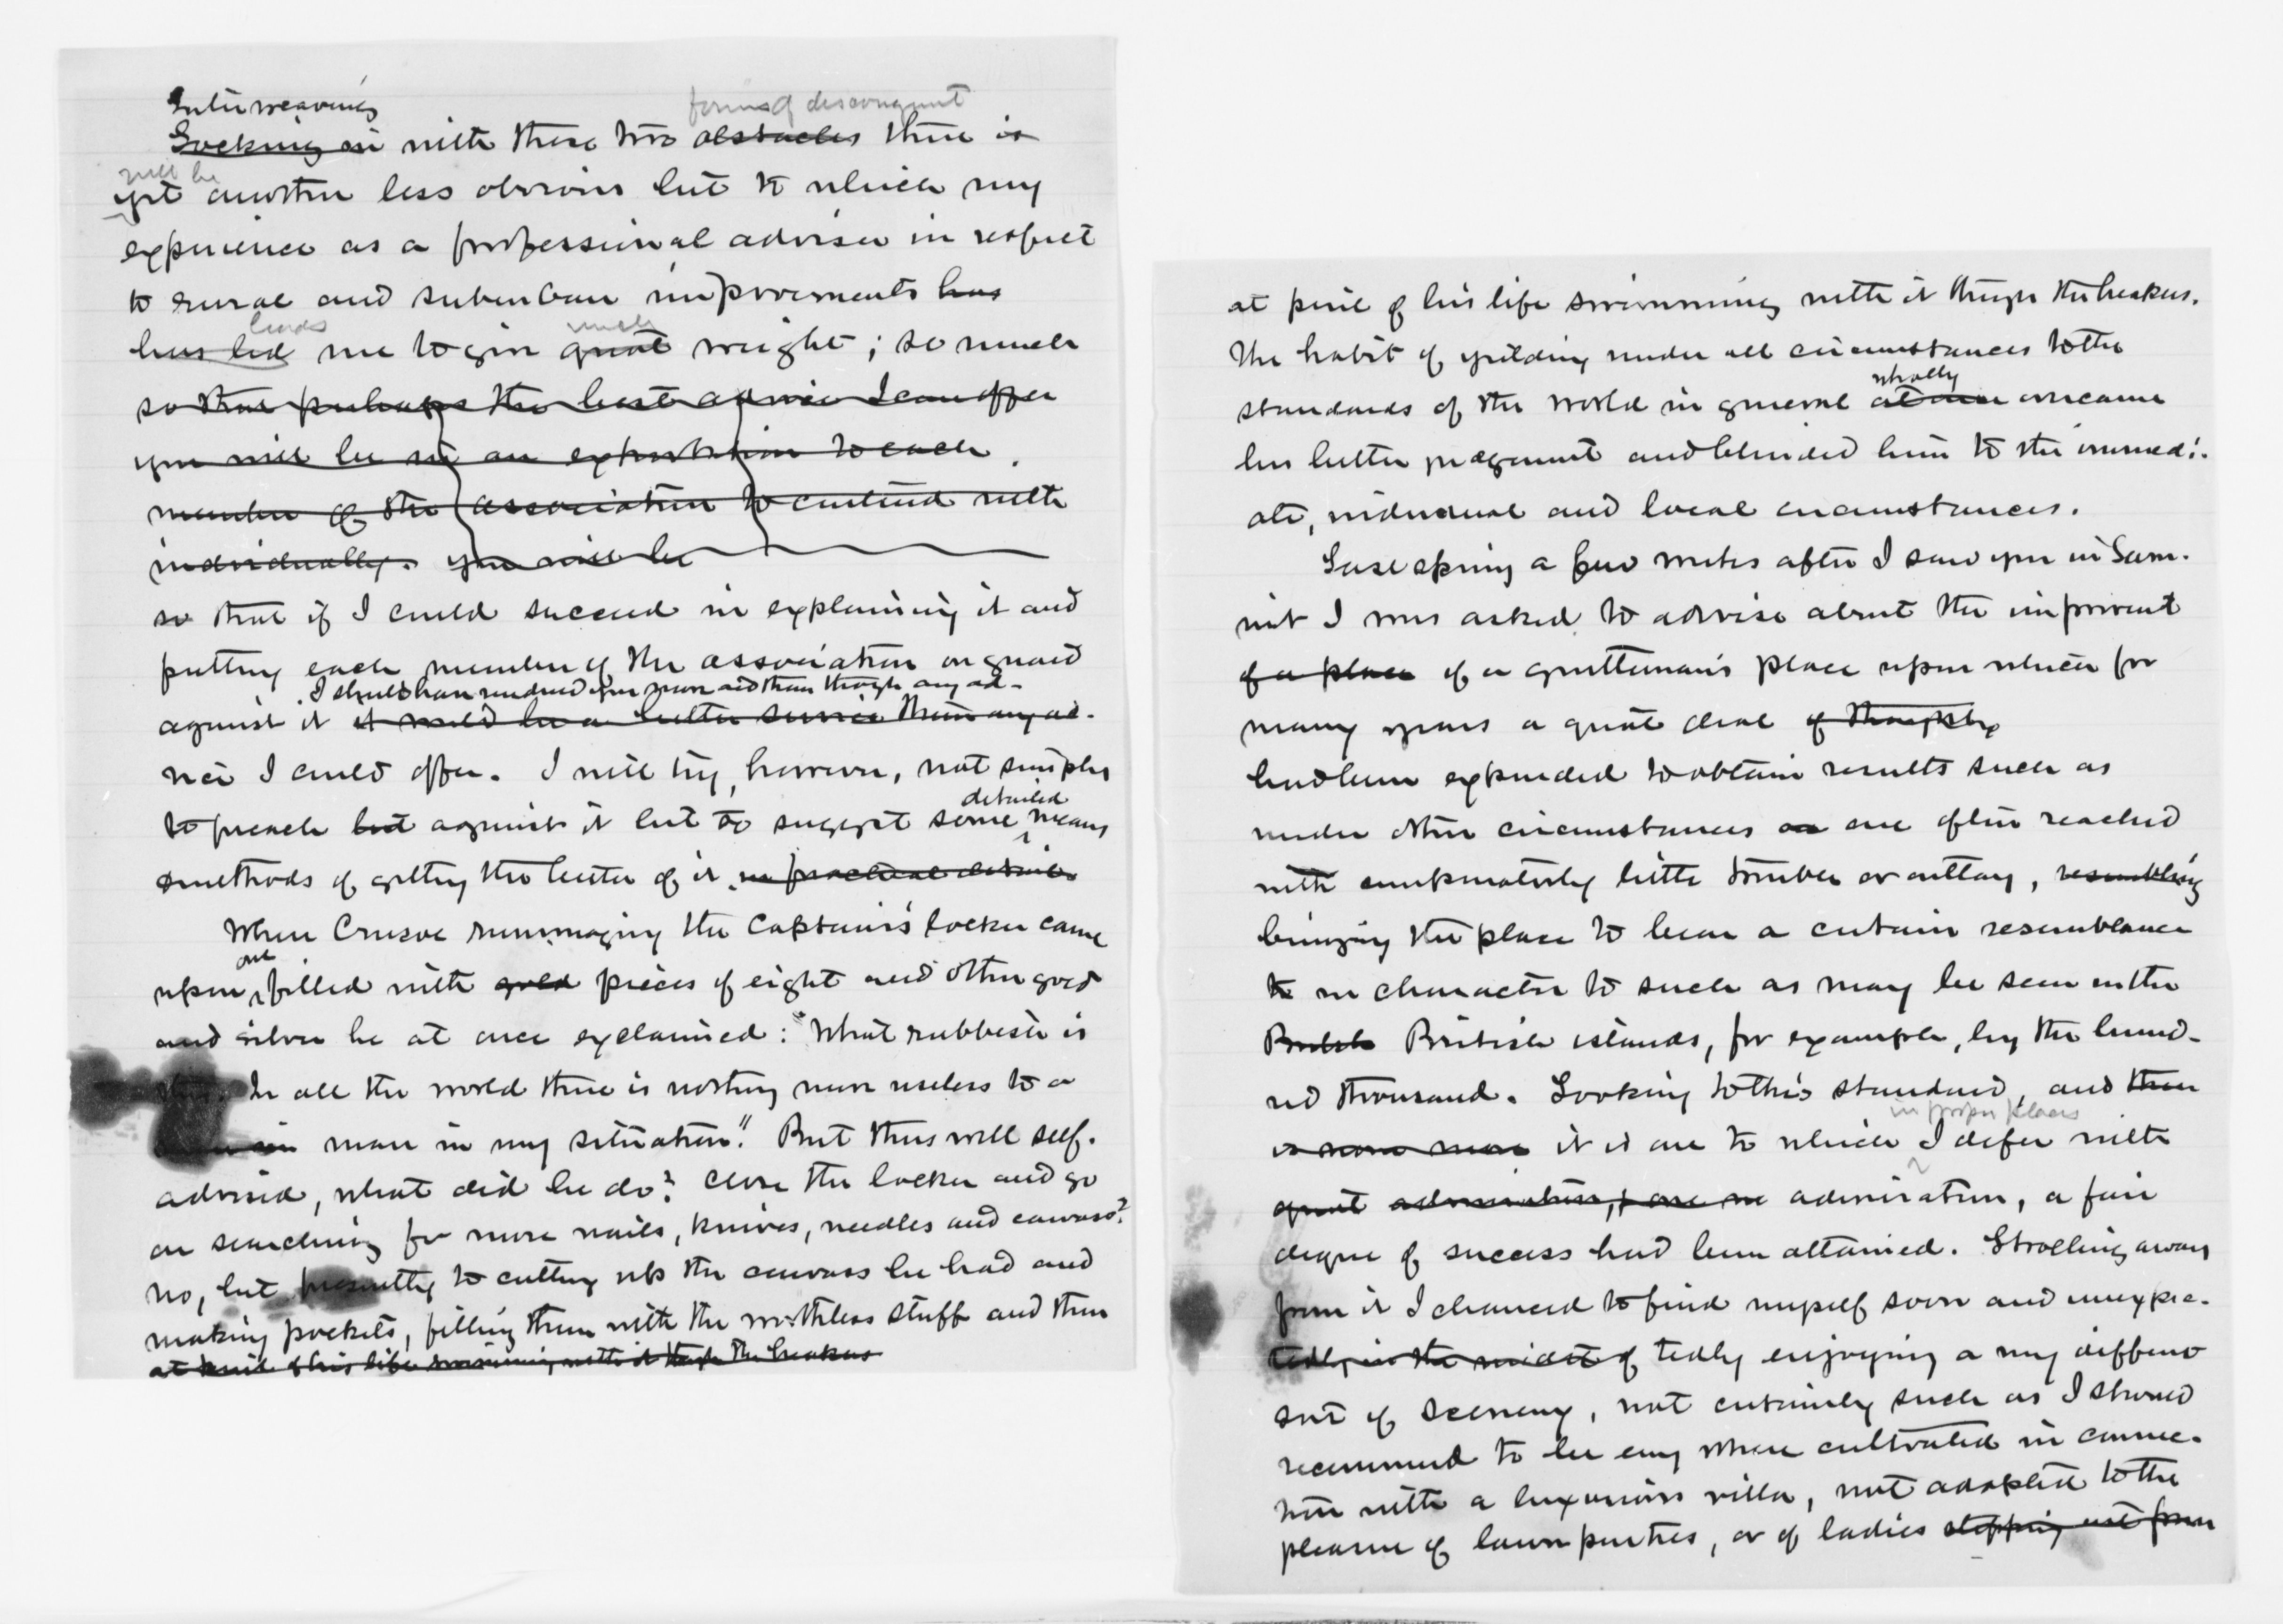 Interweaving
forms of discouragement
Locking in with these two obstacles there is
will be
yet another less obvious but to which my
experience as a professional adviser in respect
to rural and suburban improvements has
leads much
has led me to give great weight; so much
so that perhaps the best advice I can offer
you will be in an exhortation to each
member of the association to contend with
individually. you will be
so that if I could succeed in explaining it and
putting each member of the association on guard
I should have rendered you more aid than through any ad-
against it it would be a better service than any ad-
vice I could offer. I will try, however, not simply
detailed
to preach but against it but to suggest some means
& methods of getting the better of it in practical details
When Crusoe rummaging the Captain's locker came
one
upon filled with gold pieces of eight and other gold
and silver he at once exclaimed: "What rubbish is
this. In all the world there is nothing more useless to a
man in my situation". But thus well self-
advised, what did he do? Close the locker and go
on searching for more nails, knives, needles and canvass?
No, but presently to cutting up the canvass he had and
making pockets, filling them with the worthless stuff and then
at peril of his life swimming with it through the breakers
at peril of his life swimming with it through the breakers.
The habit of yielding under all circumstances to the
wholly
standards of the world in general at once overcame
his better judgment and blinded him to the immedi-
ate, individual and local circumstances.
Last spring a few weeks after I saw you in Sum-
mit I was asked to advise about the improvement
of a place of a gentleman's place upon which for
many years a great deal of thought
had been expended to obtain results such as
under other circumstances are often reached
with comparatively little trouble or outlay, resembling
bringing the place to bear a certain resemblance
to in character to such as may be seen in the
British British islands, for example, by the hund-
red thousand. Looking to this standard, and than
in proper places
is none more it is one to which I defer with
great admiration, admiration, a fair
degree of success had been attained. Strolling away
from it I chanced to find myself soon and unexpec-
tedly in the midst of tedly enjoying a very different
sort of scenery, not certainly such as I should
recommend to be any where cultivated in connec-
tion with a luxurious villa, not adapted to the
pleasure of lawn parties, or of ladies stepping out from